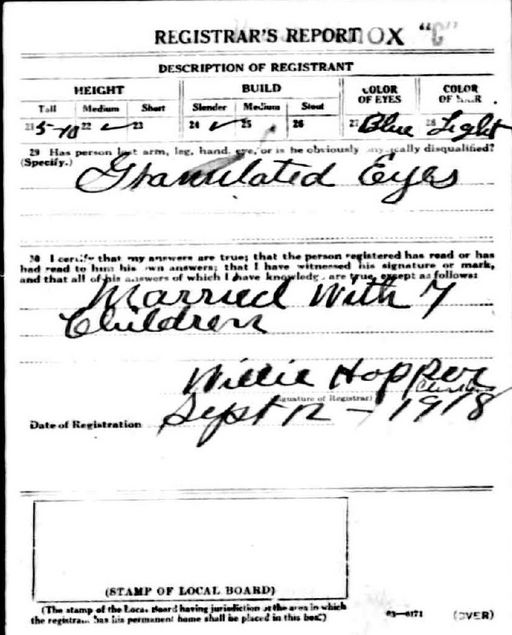 REGISTRAR'S REPORT OX "C"
DESCRIPTION OF REGISTRANT
HEIGHT BUILD COLOR OF EYES COLOR OF HAIR
Tall Medium Short Slender Medium Stout
21 5-10 22 ✓ 23 24 ✓ 25 26 27 Blue 28 Light
29 Has person lost arm, leg, hand, eye, or is he obviously physically disqualified?
(Specify.)
Granulated Eyes
30 I certify that my answers are true; that the person registered has read or has
had read to him his own answers; that I have witnessed his signature or mark,
and that all of his answers of which I have knowledge are true, except as follows:
Married With 7
Children
Willie Hopper
(Signature of Registrar)
Date of Registration Sept 12 - 1918
(STAMP OF LOCAL BOARD)
(The stamp of the Local Board having jurisdiction of the area in which
the registrant has his permanent home shall be placed in this box.)
03-6171 (OVER)